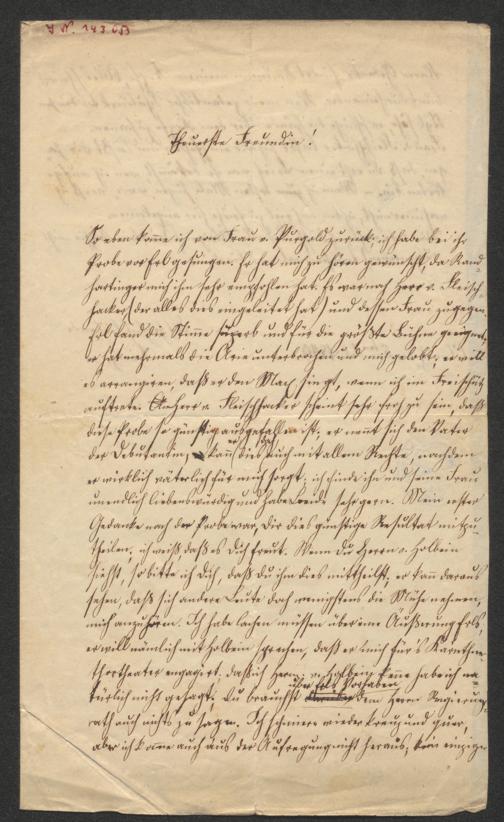 I. N. 243 653
Theuerste Freundin!
So eben komme ich von Frau v. Purgold zurück; ich habe bei ihr
Probe vor Erl gesungen. Er hat mich zu hören gewünscht, da Rand-
hartinger mich ihm sehr empfohlen hat. Es war noch Herr v. Fleisch-
hacker (der alles dies eingeleitet hat) und dessen Frau zugegen.
Erl fand die Stimme superb und für die größte Bühne geeignet,
er hat mehrmals die Arie unterbrochen und mich gelobt; er will
es arrangiren, daß er den Max singt, wenn ich im Freischütz
auftrete. Herr v. Fleischhacker scheint sehr froh zu sein, daß
diese Probe so günstig ausgefallen ist; er nennt sich den Vater
der Debutantin, kann er dies auch mit allem Rechte, nachdem
er wirklich väterlich für mich sorgt; ich finde ihn und seine Frau
unendlich liebenswürdig und habe beide sehr gern. Mein erster
Gedanke nach der Probe war, Dir dies günstige Resultat mitzu-
theilen; ich weiß daß es Dich freut. Wenn Du Herrn v. Holbein
siehst, so bitte ich Dich, daß du ihm dies mittheilst; er kann daraus
sehen, daß sich andere Leute doch wenigstens die Mühe nehmen,
mich anzuhören. Ich habe lachen müssen über eine Äußerung Erls,
er will nämlich mit Holbein sprechen, daß er mich für's Kärnthner-
thortheater engagirt; daß ich Herrn v. Holbein kenne habe ich na-
türlich nicht gesagt. Du brauchst ihm Erls Vorhaben dem Herrn Regierungs-
rath auch nichts zu sagen. Ich schmiere wieder kreuz und quer,
aber ich komme auch aus der Aufregung nicht heraus; kein einziger